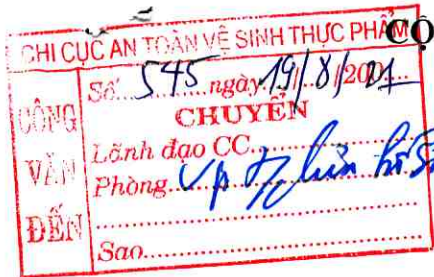 CHI CỤC AN TOÀN VỆ SINH THỰC PHẨM
CỘ
CÔNG VĂN ĐẾN
Số 545 ngày 19/8/2021
CHUYỂN
Lãnh đạo CC
Phòng Vp
Sao